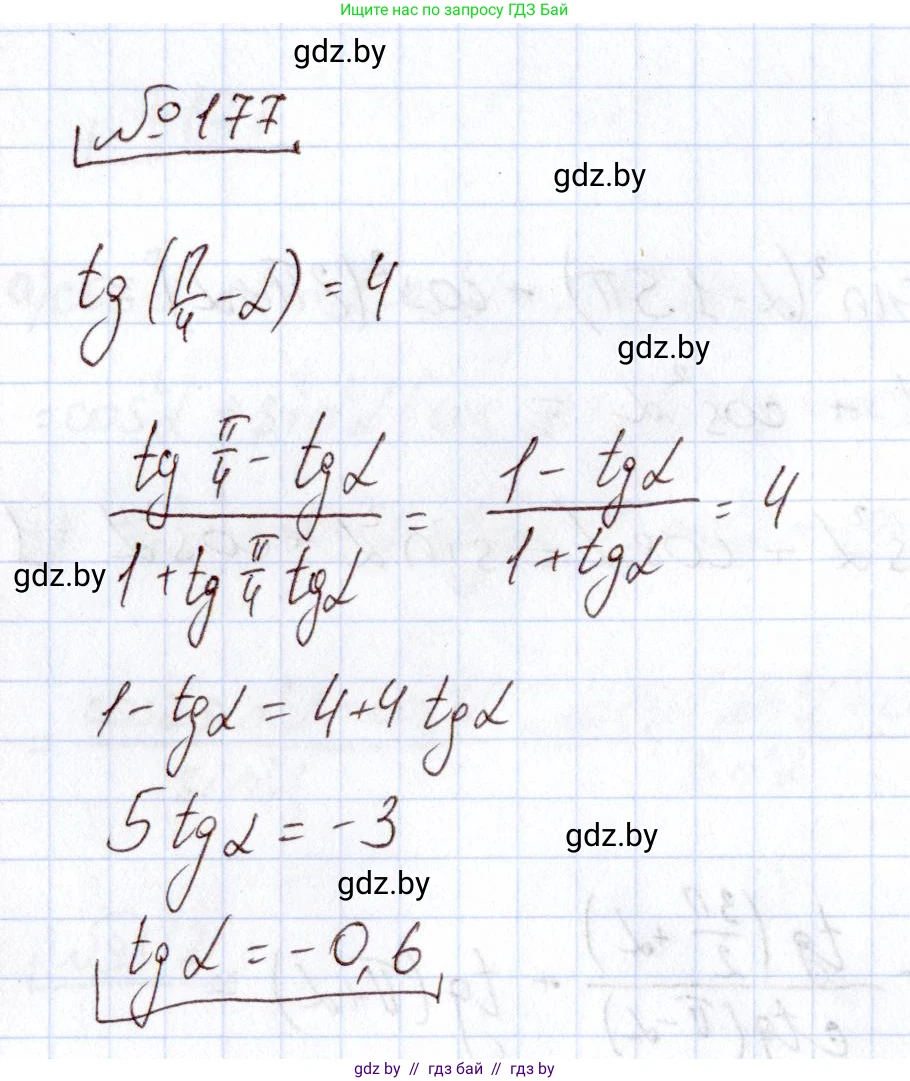 Ищите нас по запросу ГДЗ Бай
gdz.by
№ 177
gdz.by
tg(π/4 - α) = 4
gdz.by
(tg π/4 - tg α)/(1 + tg π/4 tg α) = (1 - tg α)/(1 + tg α) = 4
gdz.by
1 - tg α = 4 + 4 tg α
5 tg α = - 3
gdz.by
gdz.by
tg α = - 0,6
gdz.by // гдз бай // гдз by